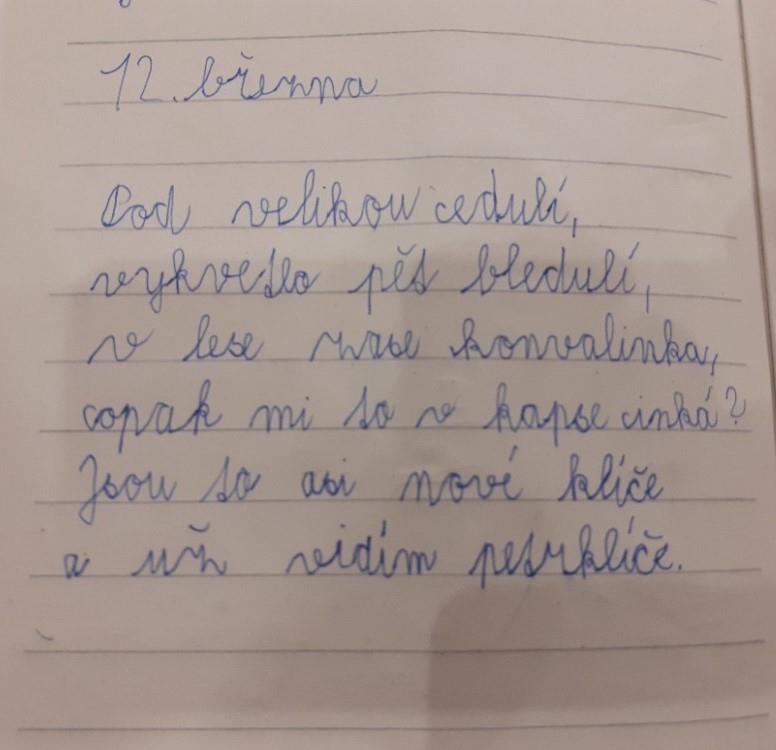 12. března
Pod velikou cedulí,
vykvetlo pět bledulí,
v lese zase konvalinka,
copak mi to v kapse cinká?
Jsou to asi nové klíče
a už vidím petrklíče.